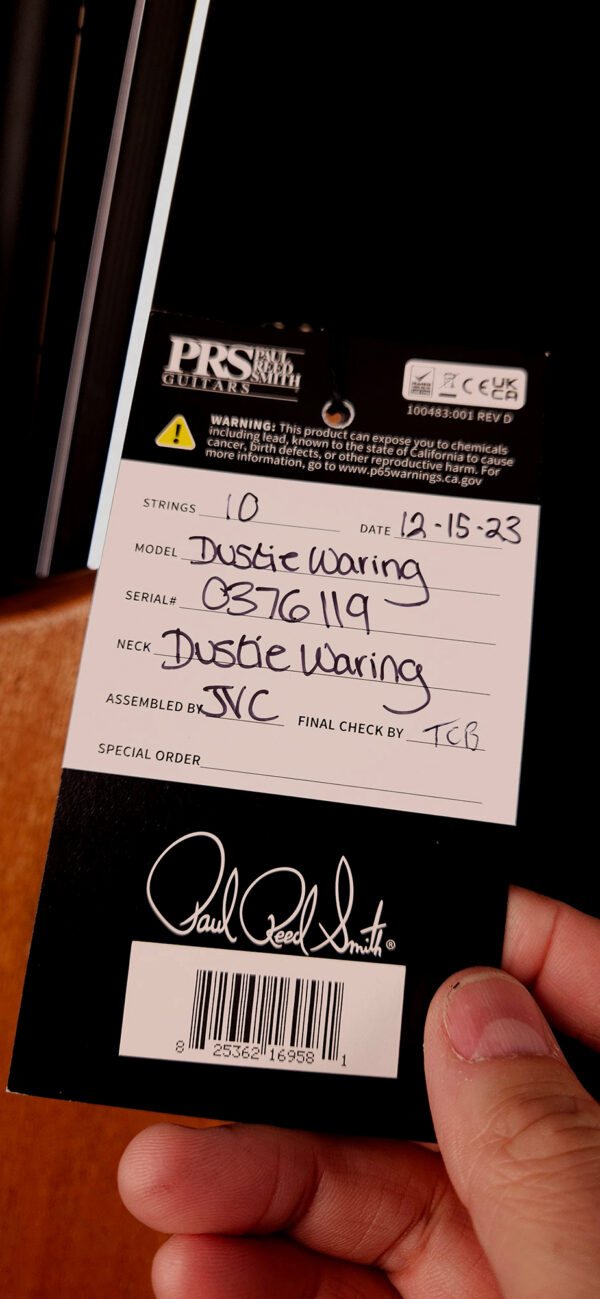 PRS PAUL REED SMITH
GUITARS
CE UK CA
100483:001 REV D
WARNING: This product can expose you to chemicals
including lead, known to the state of California to cause
cancer, birth defects, or other reproductive harm. For
more information, go to www.p65warnings.ca.gov
STRINGS 10 DATE 12-15-23
MODEL Dustie Waring
SERIAL# 0376119
NECK Dustie Waring
ASSEMBLED BY JVC FINAL CHECK BY TCB
SPECIAL ORDER
Paul Reed Smith®
8 25362 16958 1